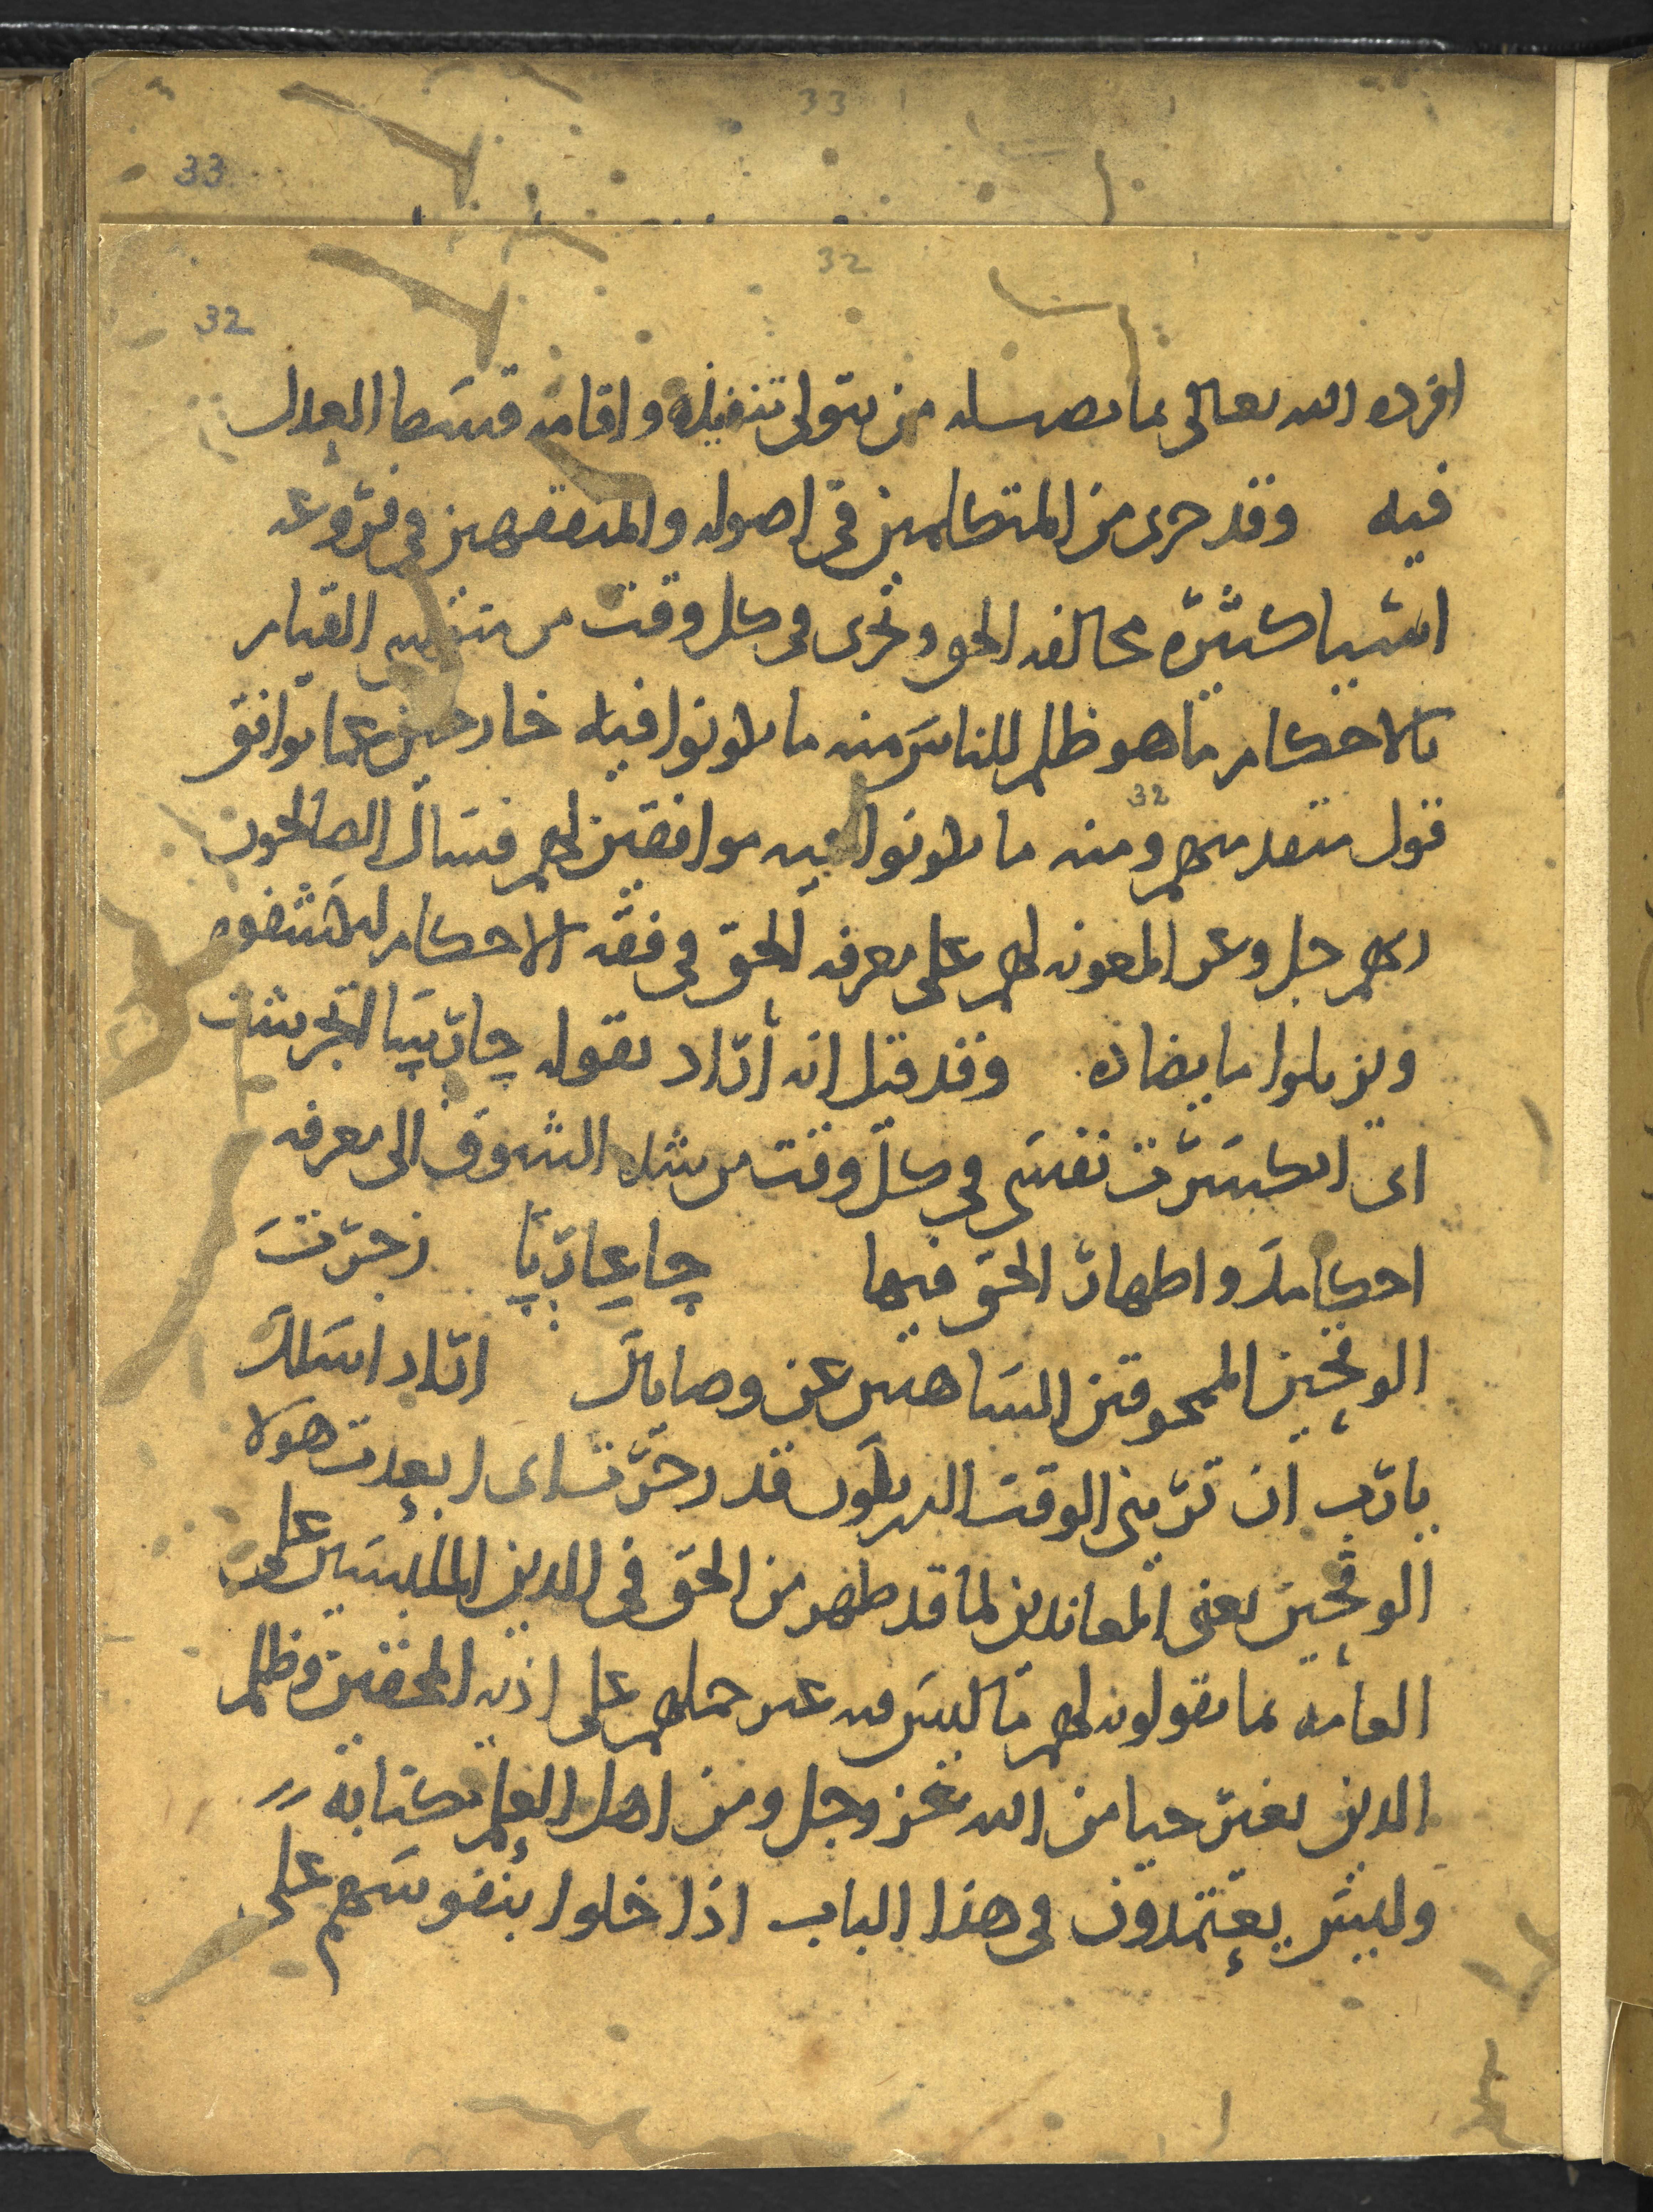 33
33
32
32
افرده الله تعالى بما نصبه من يتولى تنفيذه واقامة قسط العدل
فيه وقد جرى من المتكلمين في اصوله والمتفقهين في فروعه
اشيا كثيرة مخالفه الحق وتجرى في كل وقت من متولي القيام
بالاحكام ما هو ظلم للناس منه ما يكونوا فيه خارجين عما يوافق
32
قول متقدميهم ومنه ما يكونوا فيه موافقين لهم فسال الصالحون
ربهم جل وعز المعونه لهم على معرفه الحق في فقه الاحكام ليكشفوه
ويزيلوا ما يضاده وقد قيل انه أراد بقوله چارسا
اى انكسرت نفسى في كل وقت من شده الشوق الى معرفه
احكامك واظهار الحق فيها چاعارتا زجرت
الوقحين الممحوقين الساهين عن وصاياك اراد اسلك
يا رب ان ترينى الوقت الذي يكون قد زجرت اى ابعدت هولا
الوقحين يعنى المعاندين لما قد ظهر من الحق في الدين الملبسين على
العامه بما يقولونه لهم ما ليس فيه غير حملهم على اذيه المحقين وظلم
الدين بغير حيا من الله عز وجل ومن اهل العلم بكتابه
وليس يعتمدون في هذا الباب اذا خلوا بنفوسهم على